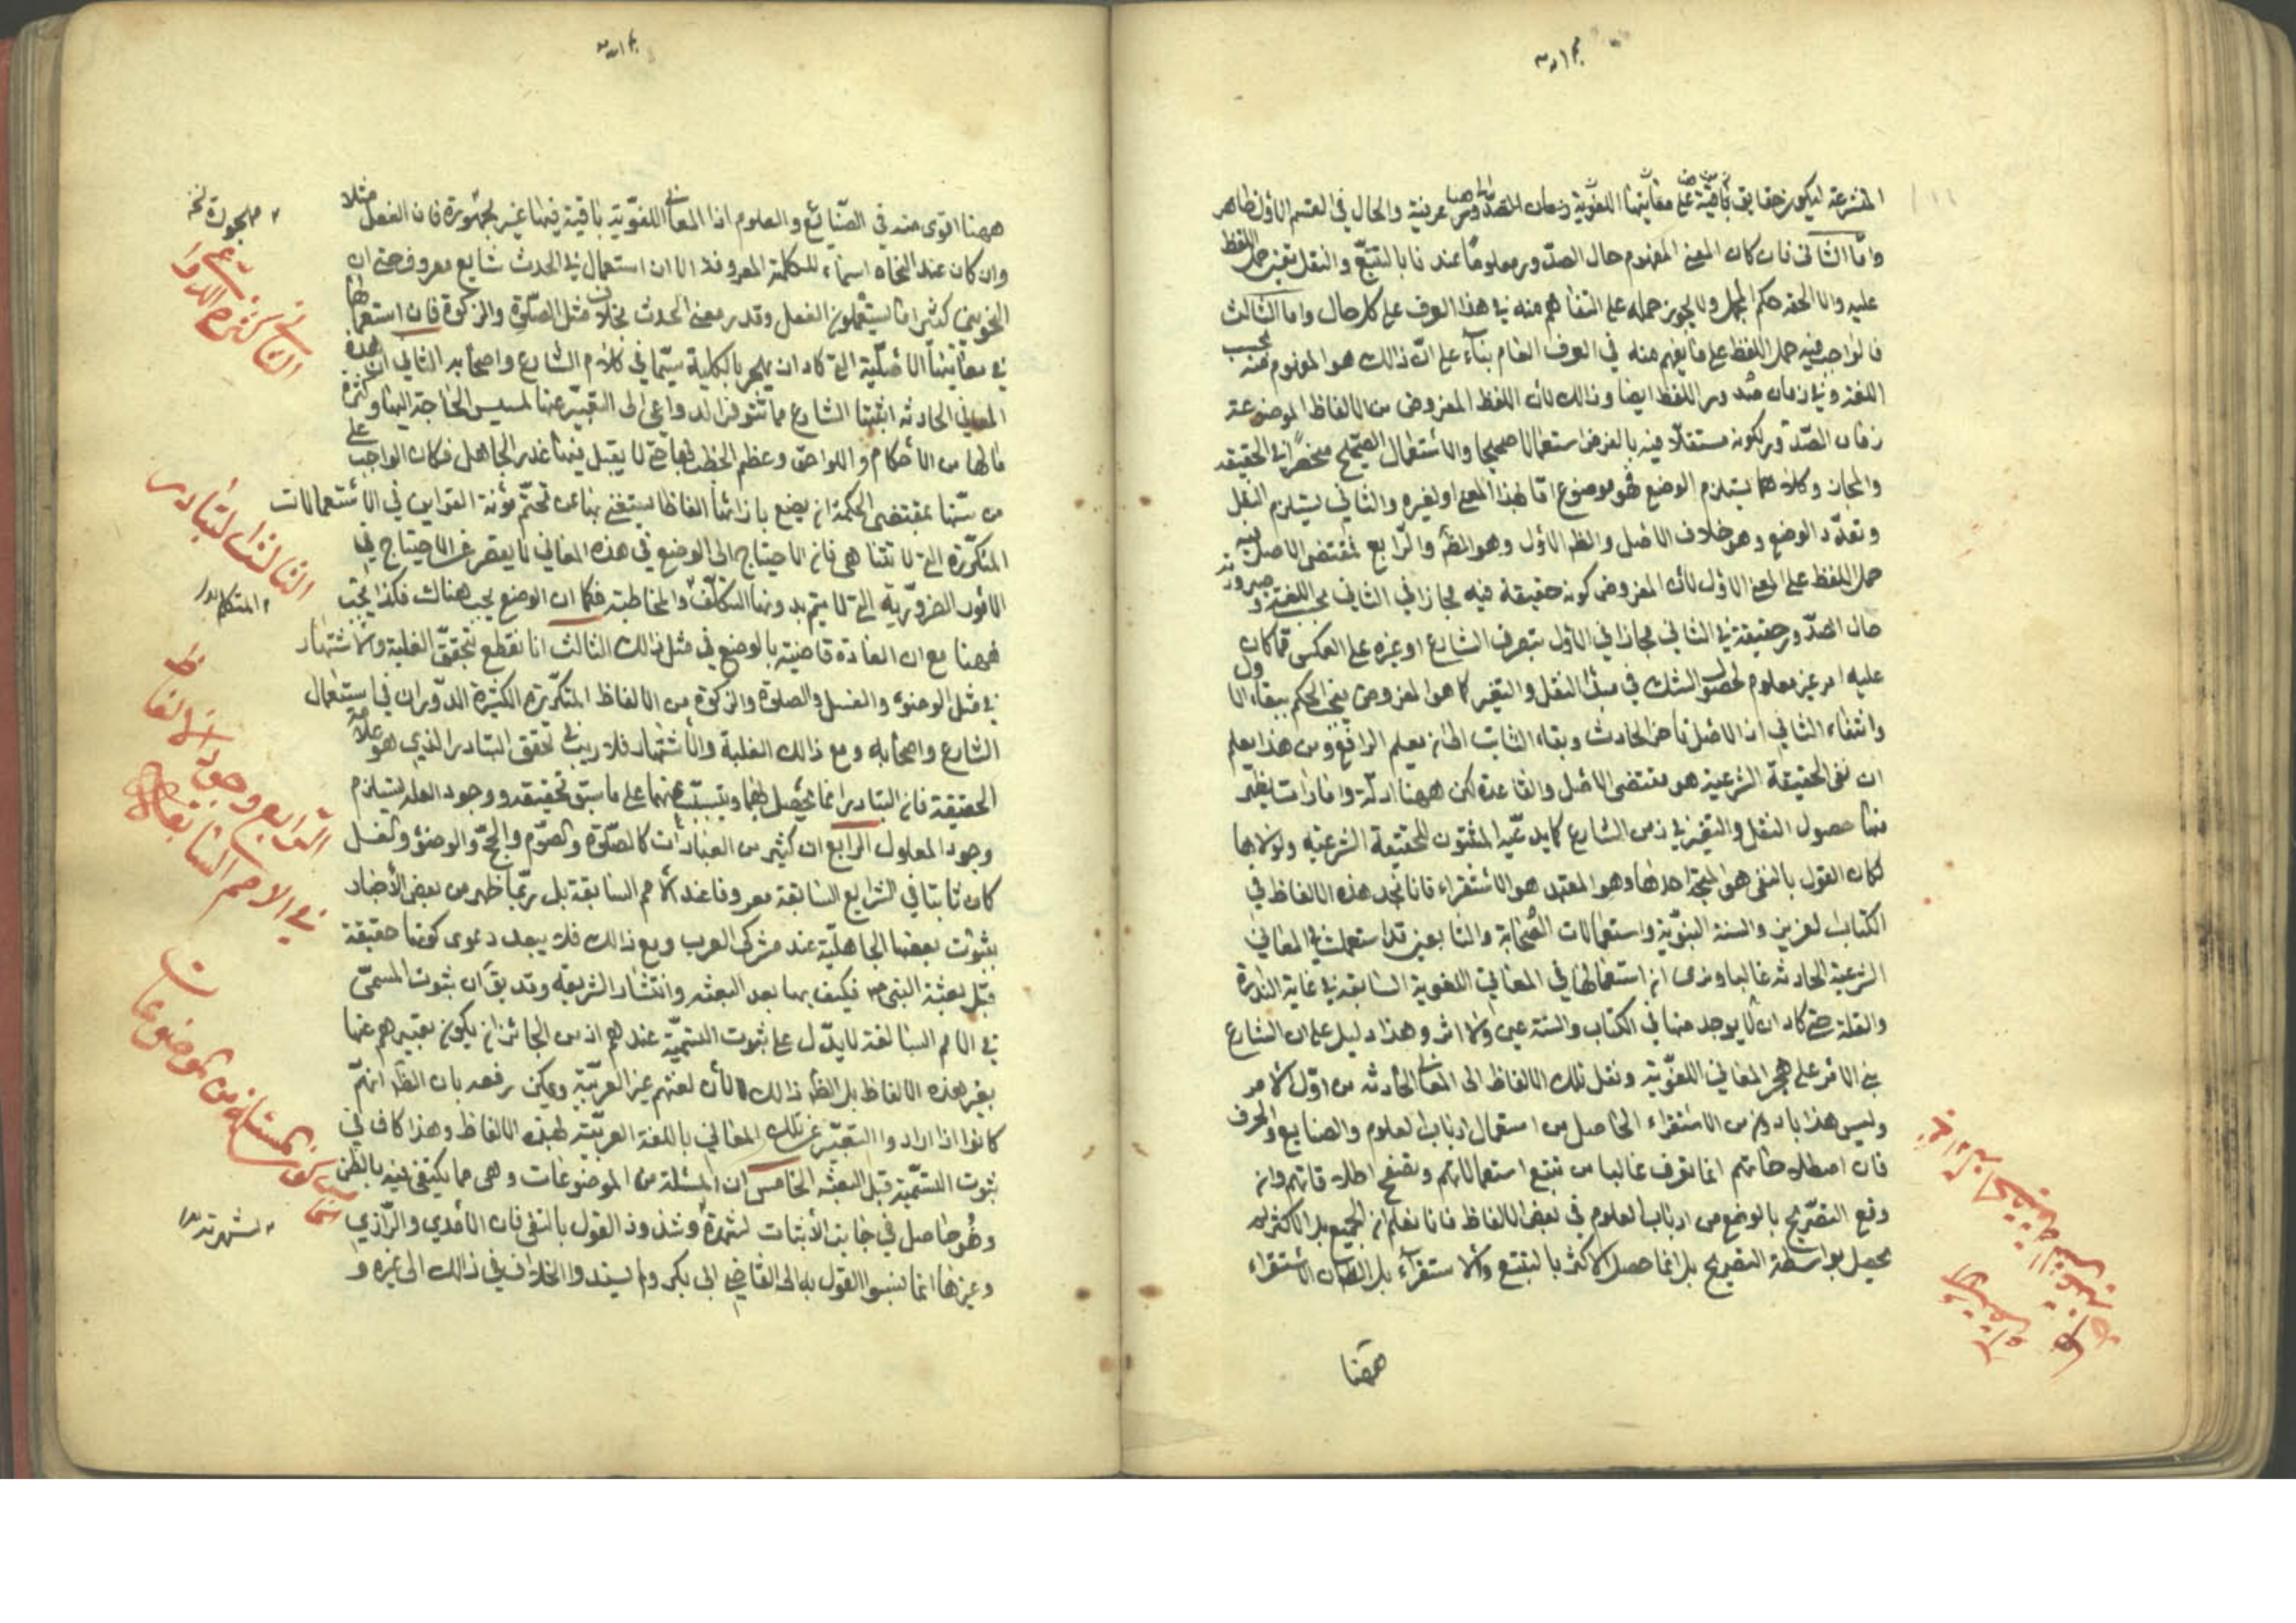 المتشرعة ليكون حقايق باقية على معانيها اللغوية زمان الصدور عرفية والحال في القسم الاول ظاهر
واما الثاني فان كان المعنى المفهوم حال الصدور معلوما عندنا بالتتبع والنقل تعين حمل اللفظ
عليه والا لحقه حكم المجمل ولا يجوز حمله على المتفاهم منه في هذا العرف على كل حال واما الثالث
فالواجب فيه حمل اللفظ على ما يفهم منه في العرف العام بناء على ان ذالك هو المفهوم منه بحسب
اللغة وفي زمان صدور اللفظ ايضا وذالك لان اللفظ المفروض من الالفاظ الموضوعة
زمان الصدور لكونه مستعملا فيه بالفرض استعمالا صحيحا والاستعمال الصحيح منحصر في الحقيقة
والمجاز وكلاهما يستلزم الوضع فهو موضوع اما لهذا المعنى او لغيره والثاني يستلزم النقل
وتعدد الوضع وهو خلاف الاصل والظ الاول وهو المط والرابع مقتضى الاصل فيه
حمل اللفظ على المعنى الاول لان المفروض كونه حقيقة فيه مجازا في الثاني بحسب اللغة و صيرورته
حال الصدور حقيقة في الثاني مجازا في الاول بتصرف الشارع او غيره على العكس مما كان
عليه امر غير معلوم لحصول الشك في مبدأ النقل والتغير كما هو المفروض فيجب الحكم ببقاء الاول
وانتفاء الثاني اذ الاصل تاخر الحادث وبقاء الثابت الى ان يعلم الرافع ومن هذا يعلم
ان نفي الحقيقة الشرعية هو مقتضى الاصل والقاعدة لكن ههنا ادلة وامارات يظهر
منها حصول النقل والتغير في زمن الشارع كما يدعيه المثبتون للحقيقة الشرعية ولولاها
لكان القول بالنفي هو المتجه احدها وهو المعتمد هو الاستقراء فانا نجد هذه الالفاظ في
الكتاب العزيز والسنة النبوية واستعمالات الصحابة والتابعين قد استعملت في المعاني
الشرعية الحادثة غالبا ونرى ان استعمالها في المعاني اللغوية السابقة في غاية الندرة
والقلة حتى كاد ان لا يوجد منها في الكتاب والسنة عين ولا اثر وهذا دليل على ان الشارع
بنى الامر على هجر المعاني اللغوية ونقل تلك الالفاظ الى المعاني الحادثة من اول الامر
وليس هذا بادون من الاستقراء الحاصل من استعمال ارباب العلوم والصنايع والحرف
فان اصطلاحاتهم انما تعرف غالبا من تتبع استعمالاتهم وتصفح اطلاقاتهم وان
وقع التصريح بالوضع من ارباب العلوم في بعض الالفاظ فانا نعلم ان الجميع بل الاكثر لم
يحصل بواسطة التصريح بل انما حصل الاكثر بالتتبع والاستقراء بل الظ ان الاستقراء
ههنا
ههنا اقوى منه في الصنائع والعلوم اذ المعاني اللغوية باقية فيها غير مهجورة فان الفعل مثلا
وان كان عند النحاة اسما للكلمة المعروفة الا ان استعماله في الحدث شايع معروف حتى ان
النحويين كثيرا ما يستعملون الفعل وقد يريد معنى الحدث بخلاف مثل الصلوة والزكوة فان استعمالها
في معانيها الاصلية التي كاد ان يهجر بالكلية سيما في كلام الشارع واصحابه الثاني ان هذه
المعاني الحادثة اثبتها الشارع مما تتوفر الدواعي الى التعبير عنها لمسيس الحاجة اليها وكثرة
مالها من الاحكام واللواحق وعظم الخطب بها حتى لا يقبل فيها عذر الجاهل فكان الواجب على
من بينها بمقتضى الحكمة ان يضع بازائها الفاظا يستغني بها عن تحتم مؤنة القراين في الاستعمالات
المتكررة التي لا تتناهى فان الاحتياج الى الوضع في هذه المعاني لا يقصر عن الاحتياج في
الامور الضرورية التي لا يتم بدونها التكلف والمخاطبة فكما ان الوضع يجب هناك فكذا يجب
ههنا مع ان العادة قاضية بالوضع في مثل ذالك الثالث انا نقطع بتحقق الغلبة والاشتهار
في مثل الوضوء والغسل والصلوة والزكوة من الالفاظ المتكررة الكثيرة الدوران في استعمال
الشارع واصحابه ومع ذالك الغلبة والاشتهار فلا ريب في تحقق التبادر الذي هو علامة
الحقيقة فان التبادر انما يحصل بهما ويتسبب عنهما على ما سبق تحقيقه ووجود العلة يستلزم
وجود المعلول الرابع ان كثير من العبادات كالصلوة والصوم والحج والوضوء والغسل
كان ثابتا في الشرايع السابقة معروفا عند الامم السابقة بل ربما ظهر من بعض الاخبار
بثبوت بعضها الجاهلية عند مشركي العرب ومع ذالك فلا يبعد دعوى كونها حقيقة
قبل بعثة النبي ص فكيف بها بعد البعثة وانتشار الشريعة وقد يق ان ثبوت المسمى
في الامم السالفة لا يدل على ثبوت التسمية عندهم اذ من الجائز ان يكون تعبيرهم عنها
بغير هذه الالفاظ بل الظ ذالك لان لغتهم غير العربية ويمكن رفعه بان الظ انهم
كانوا اذا ارادوا التعبير عن تلك المعاني باللغة العربية لهذه الالفاظ وهذا كاف في
ثبوت التسمية قبل البعثة الخامس ان المسئلة من الموضوعات وهي مما يكتفى فيه بالظن
وهو حاصل في جانب الاثبات لشهرة وشذوذ القول بالنفي فان الامدي والرازي
وغيرها انما نسبوا القول به الى القاضي ابي بكر ولم يسندوا الخلاف في ذالك الى غيره و
مهجورة نخ
الثاني كثرة الدواعي
الثالث التبادر
المتكلم بدل
الرابع وجود الالفاظ
في الامم السابقة
الخامس كون المسئلة من الموضوعات
لشهرته بدل